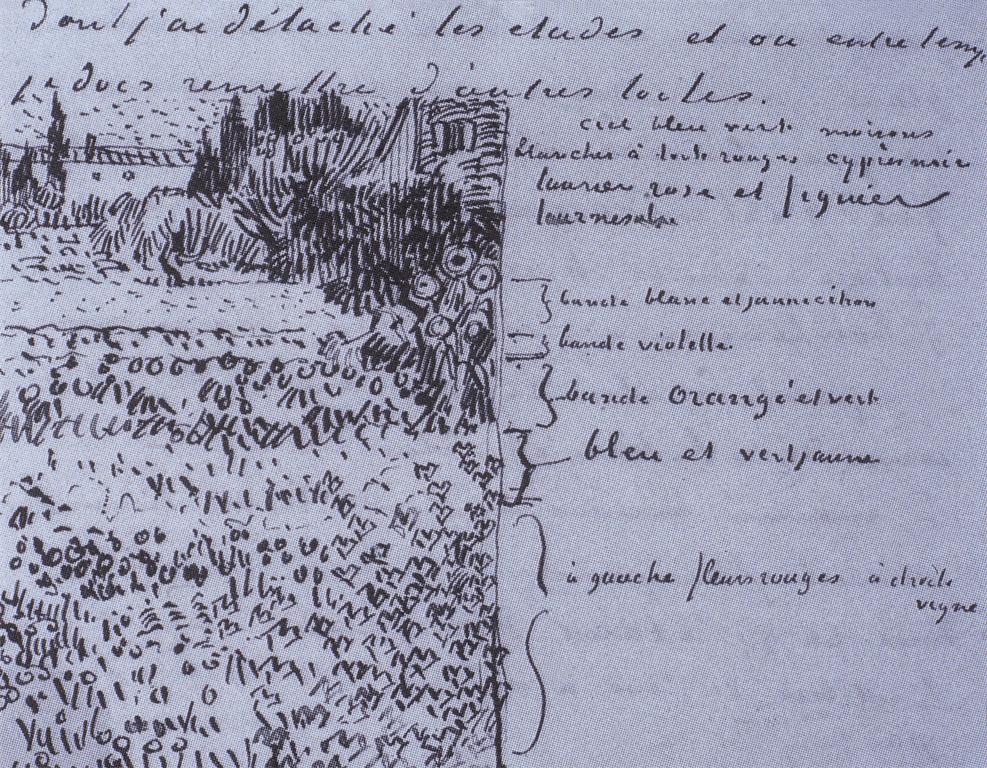 Dont j'ai détaché les etudes et ou entretemps
je dois remettre d'autres toiles.
ciel bleu vert maisons
blanches à toits rouges cyprès noir
laurier rose et figuier
tournesols
bande blanc et jaune citron
bande violette.
bande orangé et vert
bleu et vert jaune
à gauche fleurs rouges à droite
vigne